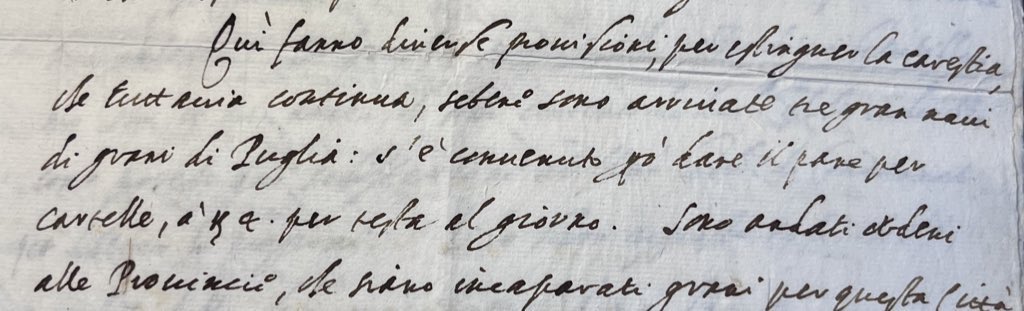 Qui fanno diuerse prouisioni, per estinguer la carestia,
che tuttauia continua, sebene sono arriuate tre gran naui
di grani di Puglia: s'è conuenuto però dare il pane per
cartelle, à per testa al giorno. Sono andati ordini
alle Prouincie, che siano incaparati grani per questa Città